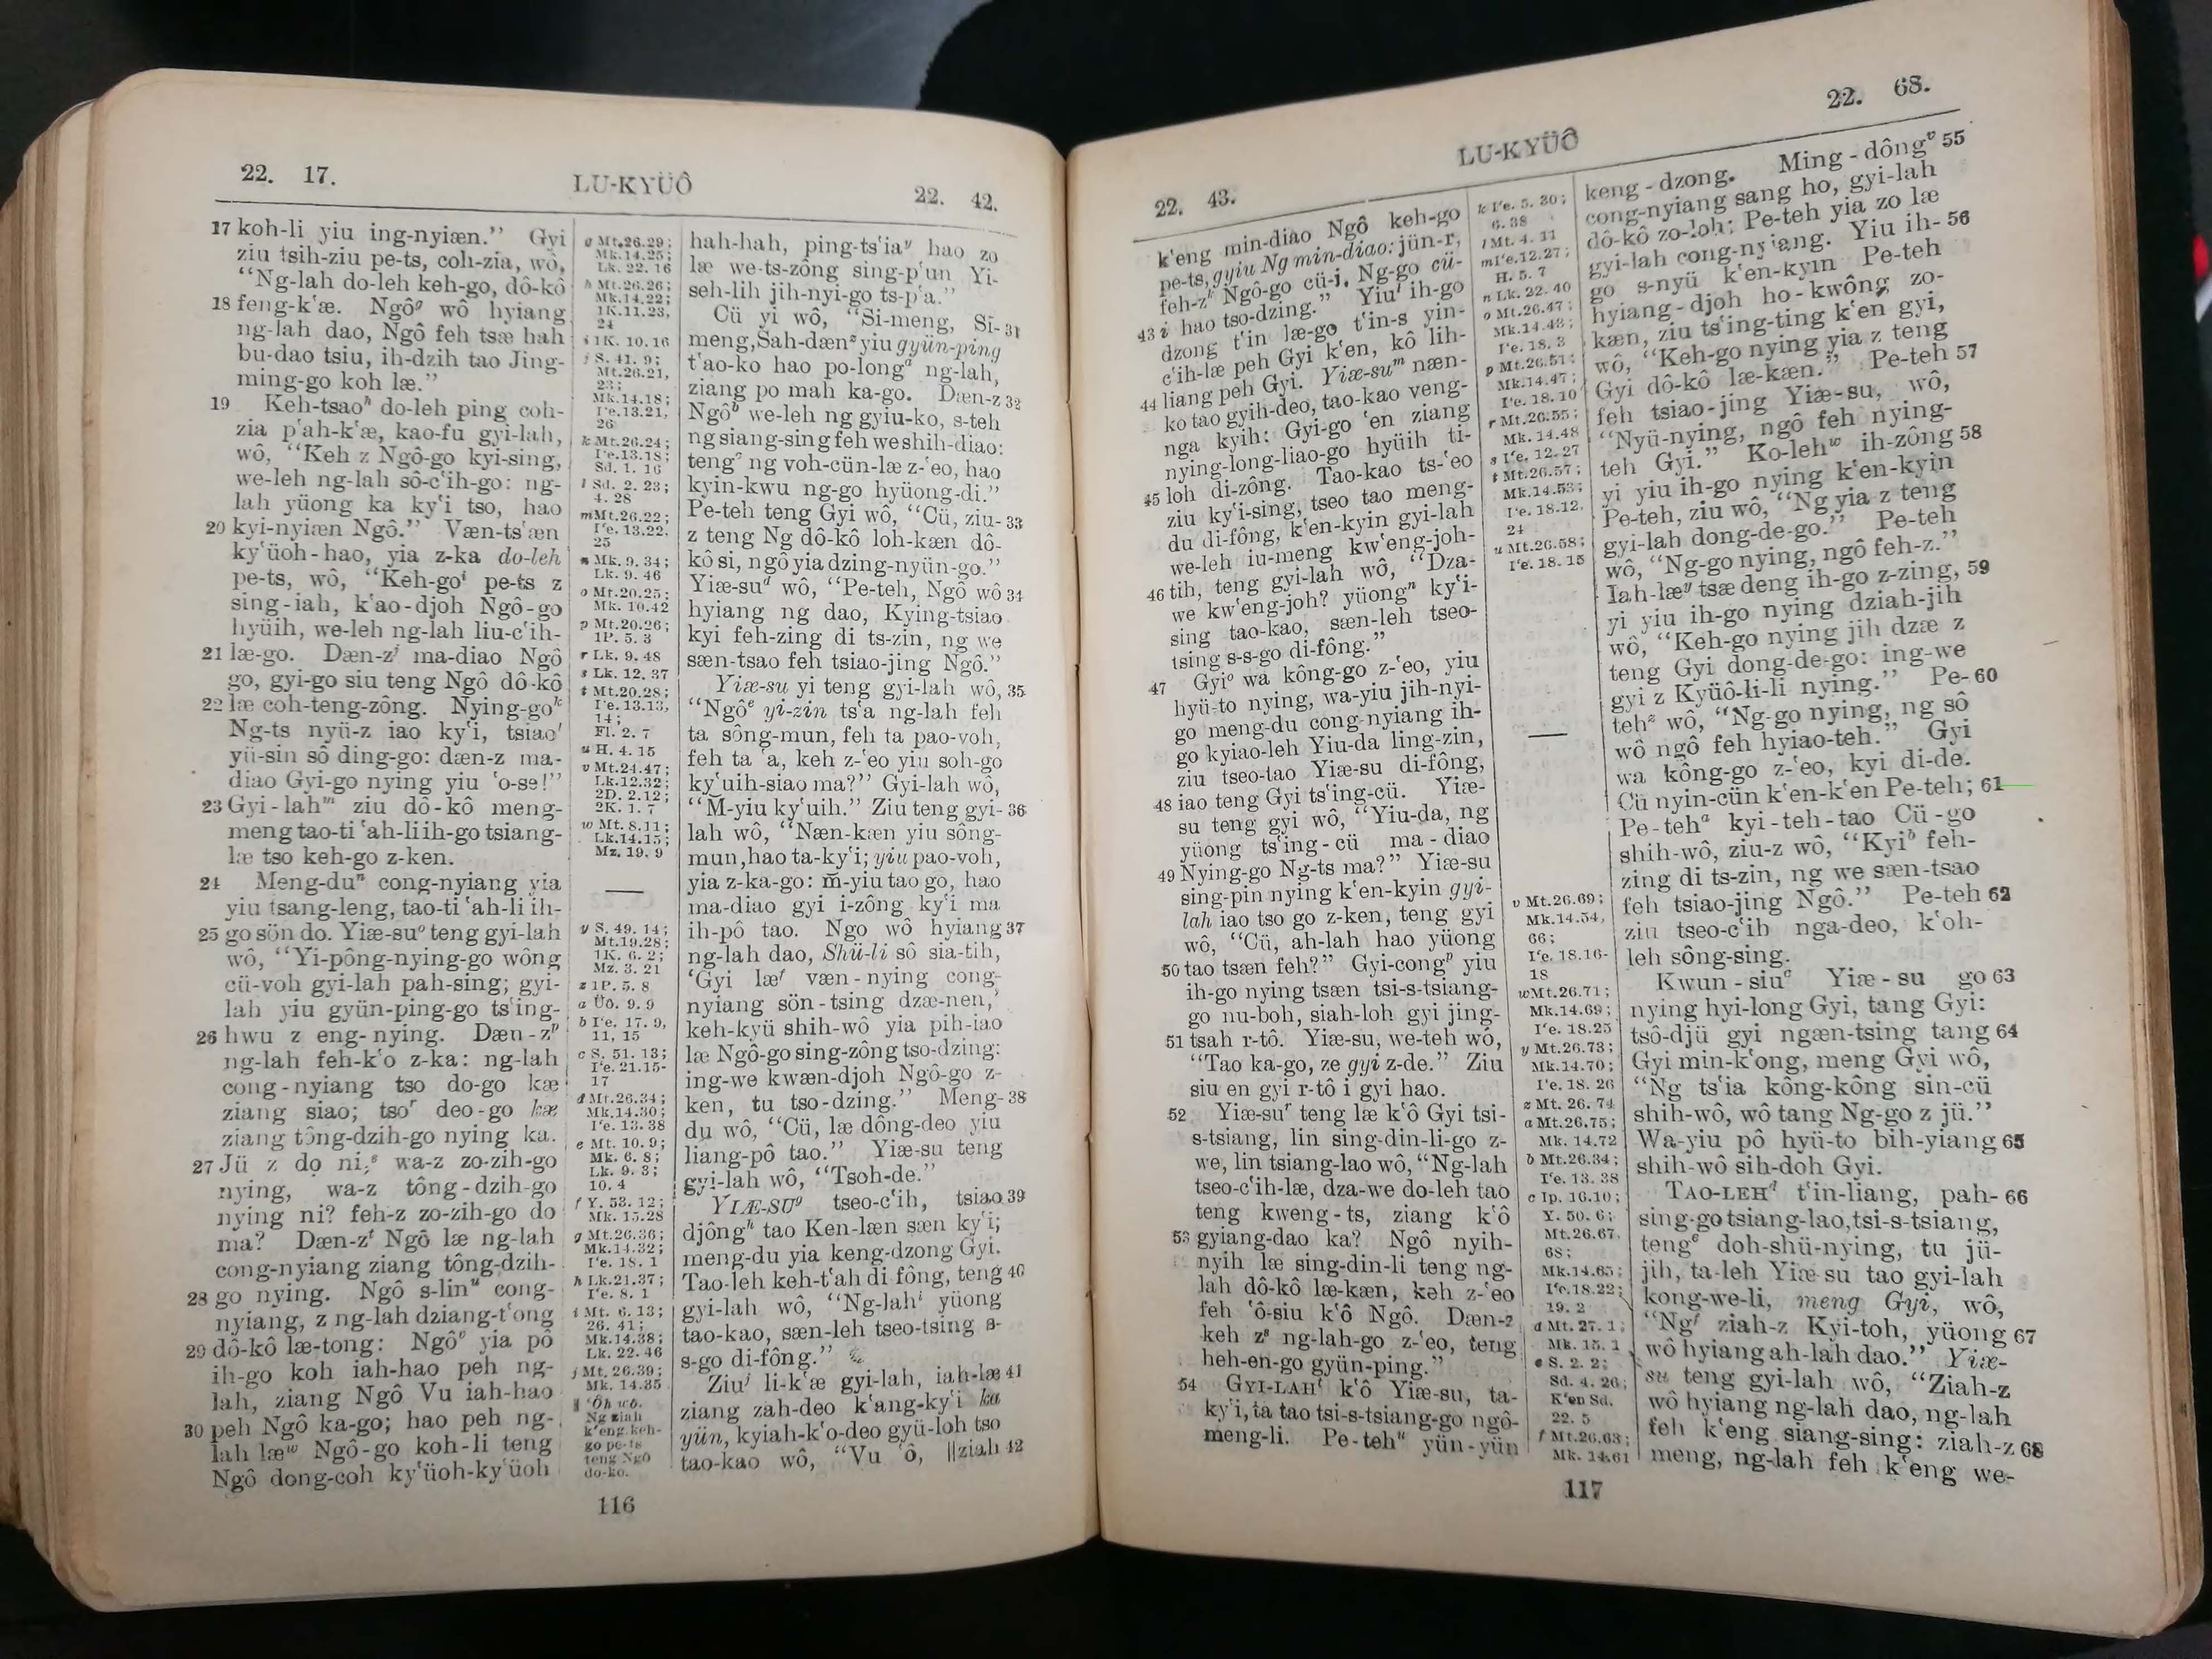 22. 17.
LU-KYÜÔ
22. 42.
17 koh-li yiu ing-nyiæn.” Gyi
ziu tsih-ziu pe-ts, coh-zia, wô,
“Ng-lah do-leh keh-go, dô-kô
18 feng-k‘æ. Ngôᵍ wô hyiang
ng-lah dao, Ngô feh tsæ hah
bu-dao tsiu, ih-dzih tao Jing-
ming-go koh læ.”
19 Keh-tsaoʰ do-leh ping coh-
zia p‘ah-k‘æ, kao-fu gyi-lah,
wô, “Keh z Ngô-go kyi-sing,
we-leh ng-lah sô-c‘ih-go: ng-
lah yüong ka ky‘i tso, hao
20 kyi-nyiæn Ngô.” Væn-ts‘æn
ky‘üoh-hao, yia z-ka do-leh
pe-ts, wô, “Keh-goⁱ pe-ts z
sing-iah, k‘ao-djoh Ngô-go
hyüih, we-leh ng-lah liu-c‘ih-
21 læ-go. Dæn-zʲ ma-diao Ngô
go, gyi-go siu teng Ngô dô-kô
22 læ coh-teng-zông. Nying-goᵏ
Ng-ts nyü-z iao ky‘i, tsiaoˡ
yü-sin sô ding-go: dæn-z ma-
diao Gyi-go nying yiu ‘o-se!”
23 Gyi-lahᵐ ziu dô-kô meng-
meng tao-ti ‘ah-li ih-go tsiang-
læ tso keh-go z-ken.
24 Meng-duⁿ cong-nyiang yia
yiu tsang-leng, tao-ti ‘ah-li ih-
25 go sön do. Yiæ-suᵒ teng gyi-lah
wô, “Yi-pông-nying-go wông
cü-voh gyi-lah pah-sing; gyi-
lah yiu gyün-ping-go ts‘ing-
26 hwu z eng-nying. Dæn-zᵖ
ng-lah feh-k‘o z-ka: ng-lah
cong-nyiang tso do-go kæ
ziang siao; tsoʳ deo-go kæ
ziang tông-dzih-go nying ka.
27 Jü z do ni,ˢ wa-z zo-zih-go
nying, wa-z tông-dzih-go
nying ni? feh-z zo-zih-go do
ma? Dæn-zᵗ Ngô læ ng-lah
cong-nyiang ziang tông-dzih-
28 go nying. Ngô s-linᵘ cong-
nyiang, z ng-lah dziang-t‘ong
29 dô-kô læ-tong: Ngôᵛ yia pô
ih-go koh iah-hao peh ng-
lah, ziang Ngô Vu iah-hao
30 peh Ngô ka-go; hao peh ng-
lah læʷ Ngô-go koh-li teng
Ngô dong-coh ky‘üoh-ky‘üoh
g Mt.26.29;
Mk.14.25;
Lk. 22. 16
h Mt.26.26;
Mk.14.22;
1K.11.23,
24
i 1K. 10. 16
j S. 41. 9;
Mt.26.21,
23;
Mk.14.18;
I‘e.13.21,
26
k Mt.26.24;
I‘e.13.18;
Sd. 1. 16
l Sd. 2. 23;
4. 28
m Mt.26.22;
I‘e. 13.22,
25
n Mk. 9. 34;
Lk. 9. 46
o Mt.20.25;
Mk. 10.42
p Mt.20.26;
1P. 5. 3
r Lk. 9. 48
s Lk. 12. 37
t Mt.20.28;
I‘e. 13.13,
14;
Fl. 2. 7
u H. 4. 15
v Mt.24.47;
Lk.12.32;
2D. 2.12;
2K. 1. 7
w Mt. 8.11;
Lk.14.15;
Mz. 19. 9
y S. 49. 14;
Mt.19.28;
1K. 6. 2;
Mz. 3. 21
z 1P. 5. 8
a Üô. 9. 9
b I‘e. 17. 9,
11, 15
c S. 51. 13;
I‘e. 21.15-
17
d Mt.26.34;
Mk.14.30;
I‘e. 13. 38
e Mt. 10. 9;
Mk. 6. 8;
Lk. 9. 3;
10. 4
f Y. 53. 12;
Mk. 15.28
g Mt.26.36;
Mk.14.32;
I‘e. 18. 1
h Lk.21.37;
I‘e. 8. 1
i Mt. 6. 13;
26. 41;
Mk.14.38;
Lk. 22. 46
j Mt. 26.39;
Mk. 14.35
‖ ‘Ôh wô.
Ng ziah
k‘eng keh-
go pe-ts
teng Ngô
do-ko.
hah-hah, ping-ts‘iaʸ hao zo
læ we-ts-zông sing-p‘un Yi-
seh-lih jih-nyi-go ts-p‘a.”
Cü yi wô, “Si-meng, Si- 31
meng, Sah-dænᶻ yiu gyün-ping
t‘ao-ko hao po-longᵃ ng-lah,
ziang po mah ka-go. Dæn-z 32
Ngôᵇ we-leh ng gyiu-ko, s-teh
ng siang-sing feh we shih-diao:
tengᶜ ng voh-cün-læ z-‘eo, hao
kyin-kwu ng-go hyüong-di.”
Pe-teh teng Gyi wô, “Cü, ziu- 33
z teng Ng dô-kô loh-kæn dô-
kô si, ngô yia dzing-nyün-go.”
Yiæ-suᵈ wô, “Pe-teh, Ngô wô 34
hyiang ng dao, Kying-tsiao
kyi feh-zing di ts-zin, ng we
sæn-tsao feh tsiao-jing Ngô.”
Yiæ-su yi teng gyi-lah wô, 35
“Ngôᵉ yi-zin ts‘a ng-lah feh
ta sông-mun, feh ta pao-voh,
feh ta ‘a, keh z-‘eo yiu soh-go
ky‘uih-siao ma?” Gyi-lah wô,
“M̄-yiu ky‘uih.” Ziu teng gyi- 36
lah wô, “Næn-kæn yiu sông-
mun, hao ta-ky‘i; yiu pao-voh,
yia z-ka-go: m̄-yiu tao go, hao
ma-diao gyi i-zông ky‘i ma
ih-pô tao. Ngo wô hyiang 37
ng-lah dao, Shü-li sô sia-tih,
‘Gyi læᶠ væn-nying cong-
nyiang sön-tsing dzæ-nen,’
keh-kyü shih-wô yia pih-iao
læ Ngô-go sing-zông tso-dzing:
ing-we kwæn-djoh Ngô-go z-
ken, tu tso-dzing.” Meng- 38
du wô, “Cü, læ dông-deo yiu
liang-pô tao.” Yiæ-su teng
gyi-lah wô, “Tsoh-de.”
YIÆ-SUᵍ tseo-c‘ih, tsiao 39
djôngʰ tao Ken-læn sæn ky‘i;
meng-du yia keng-dzong Gyi.
Tao-leh keh-t‘ah di fông, teng 40
gyi-lah wô, “Ng-lahⁱ yüong
tao-kao, sæn-leh tseo-tsing s-
s-go di-fông.”
Ziuʲ li-k‘æ gyi-lah, iah-læ 41
ziang zah-deo k‘ang-ky‘i ka
yün, kyiah-k‘o-deo gyü-loh tso
tao-kao wô, “Vu ‘ô, ‖ziah 42
116
22. 43.
LU-KYÜÔ
22. 68.
k‘eng min-diao Ngô keh-go
pe-ts, gyiu Ng min-diao: jün-r,
feh-zᵏ Ngô-go cü-i, Ng-go cü-
43 i hao tso-dzing.” Yiuˡ ih-go
dzong t‘in læ-go t‘in-s yin-
c‘ih-læ peh Gyi k‘en, kô lih-
44 liang peh Gyi. Yiæ-suᵐ næn-
ko tao gyih-deo, tao-kao veng-
nga kyih: Gyi-go ‘en ziang
nying-long-liao-go hyüih ti-
45 loh di-zông. Tao-kao ts-‘eo
ziu ky‘i-sing, tseo tao meng-
du di-fông, k‘en-kyin gyi-lah
we-leh iu-meng kw‘eng-joh-
46 tih, teng gyi-lah wô, “Dza-
we kw‘eng-joh? yüongⁿ ky‘i-
sing tao-kao, sæn-leh tseo-
tsing s-s-go di-fông.”
47 Gyiᵒ wa kông-go z-‘eo, yiu
hyü-to nying, wa-yiu jih-nyi-
go meng-du cong-nyiang ih-
go kyiao-leh Yiu-da ling-zin,
ziu tseo-tao Yiæ-su di-fông,
48 iao teng Gyi ts‘ing-cü. Yiæ-
su teng gyi wô, “Yiu-da, ng
yüong ts‘ing-cü ma-diao
49 Nying-go Ng-ts ma?” Yiæ-su
sing-pin nying k‘en-kyin gyi-
lah iao tso go z-ken, teng gyi
wô, “Cü, ah-lah hao yüong
50 tao tsæn feh?” Gyi-congᵖ yiu
ih-go nying tsæn tsi-s-tsiang-
go nu-boh, siah-loh gyi jing-
51 tsah r-tô. Yiæ-su, we-teh wô,
“Tao ka-go, ze gyi z-de.” Ziu
siu en gyi r-tô i gyi hao.
52 Yiæ-suʳ teng læ k‘ô Gyi tsi-
s-tsiang, lin sing-din-li-go z-
we, lin tsiang-lao wô, “Ng-lah
tseo-c‘ih-læ, dza-we do-leh tao
teng kweng-ts, ziang k‘ô
53 gyiang-dao ka? Ngô nyih-
nyih læ sing-din-li teng ng-
lah dô-kô læ-kæn, keh z-‘eo
feh ‘ô-siu k‘ô Ngô. Dæn-z
keh zˢ ng-lah-go z-‘eo, teng
heh-en-go gyün-ping.”
54 GYI-LAHᵗ k‘ô Yiæ-su, ta-
ky‘i, ta tao tsi-s-tsiang-go ngô-
meng-li. Pe-tehᵘ yün-yün
k I‘e. 5. 30;
6. 38
l Mt. 4. 11
m I‘e.12.27;
H. 5. 7
n Lk. 22. 40
o Mt.26.47;
Mk.14.43;
I‘e. 18. 3
p Mt.26.51;
Mk.14.47;
I‘e. 18. 10
r Mt.26.55;
Mk. 14.48
s I‘e. 12. 27
t Mt.26.57;
Mk.14.53;
I‘e. 18.12,
24
u Mt.26.58;
I‘e. 18. 15
v Mt.26.69;
Mk.14.54,
66;
I‘e. 18.16-
18
w Mt.26.71;
Mk.14.69;
I‘e. 18.25
y Mt.26.73;
Mk.14.70;
I‘e. 18. 26
z Mt. 26. 74
a Mt.26.75;
Mk. 14.72
b Mt.26.34;
I‘e. 13. 38
c Ip. 16.10;
Y. 50. 6;
Mt.26.67,
68;
Mk.14.65;
I‘e.18.22;
19. 2
d Mt. 27. 1;
Mk. 15. 1
e S. 2. 2;
Sd. 4. 26;
K‘en Sd.
22. 5
f Mt.26.63;
Mk. 14.61
keng-dzong. Ming-dôngᵛ 55
cong-nyiang sang ho, gyi-lah
dô-kô zo-loh: Pe-teh yia zo læ
gyi-lah cong-nyiang. Yiu ih- 56
go s-nyü k‘en-kyin Pe-teh
hyiang-djoh ho-kwông zo-
kæn, ziu ts‘ing-ting k‘en gyi,
wô, “Keh-go nying yia z teng
Gyi dô-kô læ-kæn.” Pe-teh 57
feh tsiao-jing Yiæ-su, wô,
“Nyü-nying, ngô feh nying-
teh Gyi.” Ko-lehʷ ih-zông 58
yi yiu ih-go nying k‘en-kyin
Pe-teh, ziu wô, “Ng yia z teng
gyi-lah dong-de-go.” Pe-teh
wô, “Ng-go nying, ngô feh-z.”
Iah-læʸ tsæ deng ih-go z-zing, 59
yi yiu ih-go nying dziah-jih
wô, “Keh-go nying jih dzæ z
teng Gyi dong-de-go: ing-we
gyi z Kyüô-li-li nying.” Pe- 60
tehᶻ wô, “Ng-go nying, ng sô
wô ngô feh hyiao-teh.” Gyi
wa kông-go z-‘eo, kyi di-de.
Cü nyin-cün k‘en-k‘en Pe-teh; 61
Pe-tehᵃ kyi-teh-tao Cü-go
shih-wô, ziu-z wô, “Kyiᵇ feh-
zing di ts-zin, ng we sæn-tsao
feh tsiao-jing Ngô.” Pe-teh 62
ziu tseo-c‘ih nga-deo, k‘oh-
leh sông-sing.
Kwun-siuᶜ Yiæ-su go 63
nying hyi-long Gyi, tang Gyi:
tsô-djü gyi ngæn-tsing tang 64
Gyi min-k‘ong, meng Gyi wô,
“Ng ts‘ia kông-kông sin-cü
shih-wô, wô tang Ng-go z jü.”
Wa-yiu pô hyü-to bih-yiang 65
shih-wô sih-doh Gyi.
TAO-LEHᵈ t‘in-liang, pah- 66
sing-go tsiang-lao, tsi-s-tsiang,
tengᵉ doh-shü-nying, tu jü-
jih, ta-leh Yiæ-su tao gyi-lah
kong-we-li, meng Gyi, wô,
“Ngᶠ ziah-z Kyi-toh, yüong 67
wô hyiang ah-lah dao.” Yiæ-
su teng gyi-lah wô, “Ziah-z
wô hyiang ng-lah dao, ng-lah
feh k‘eng siang-sing: ziah-z 68
meng, ng-lah feh k‘eng we-
117